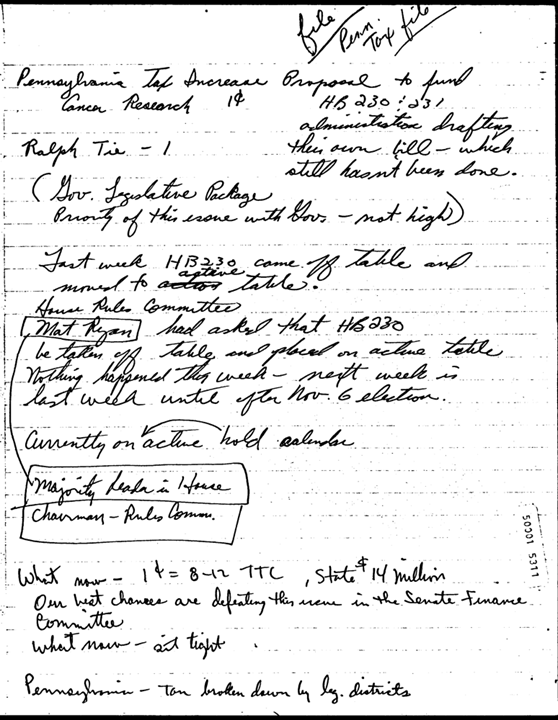 file
Penn.
Tax file
Pennsylvania Tax Increase Proposal to fund
Cancer Research 1¢ HB 230 : 231
administration drafting
Ralph Tie - 1 their own bill - which
still hasn't been done.
(Gov. Legislative Package
Priority of this issue with Govs - not high)
Last week HB230 came off table and
active
moved to action table.
House Rules Committee
Mat Ryan had asked that HB230
be taken off table and placed on active table
Nothing happened this week - next week is
last week until after Nov. 6 election.
Currently on active hold calendar
Majority Leader in House
Chairman - Rules Comm.
What now - 1¢ = 8-12 TTC, State $14 million
Our best chances are defeating this issue in the Senate Finance
Committee
What now - sit tight
Pennsylvania - Tan broken down by leg. districts
50001 5311